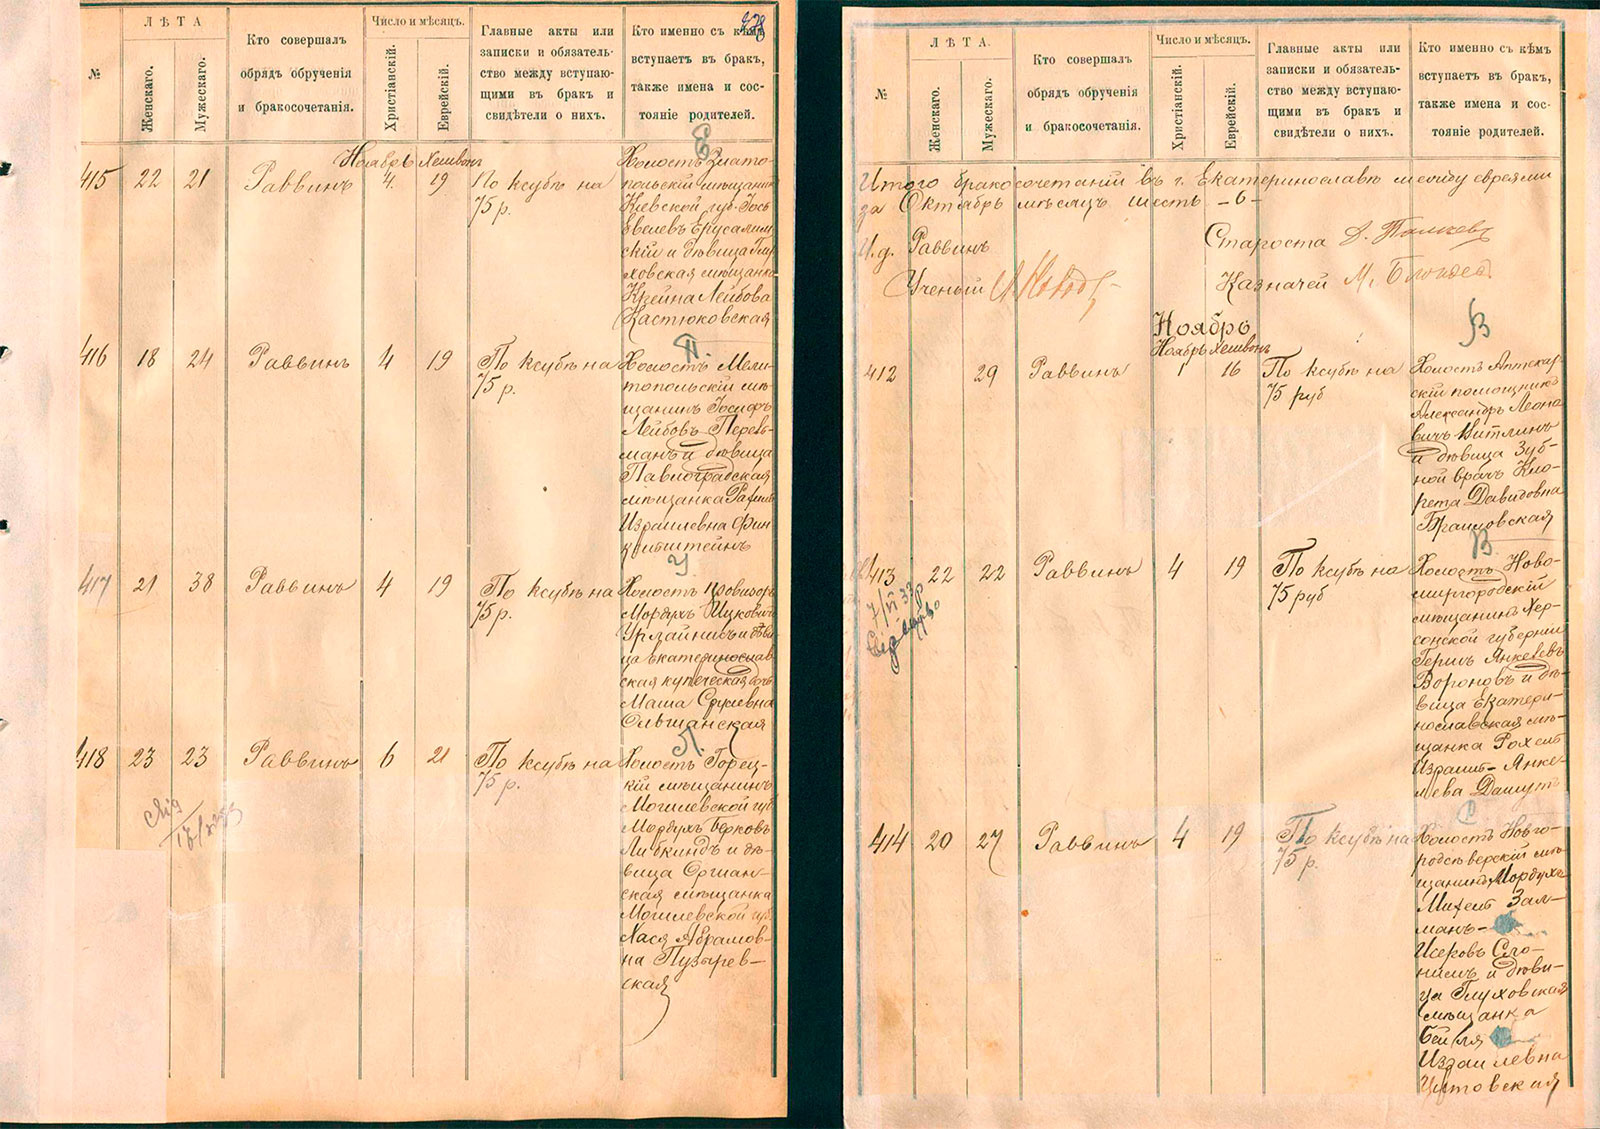 278
№
ЛѢТА
Женскаго.
Мужескаго.
Кто совершалъ
обрядъ обрученія
и бракосочетанія.
Число и мѣсяцъ.
Христіанскій.
Еврейскій.
Главные акты или
записки и обязатель-
ство между вступаю-
щими въ бракъ и
свидѣтели о нихъ.
Кто именно съ кѣмъ
вступаетъ въ бракъ,
также имена и сос-
тояніе родителей.
Ноябрь Хешвонъ
415 22 21 Раввинъ 4 19 По ксубѣ на
75 р.
Холостъ Злато-
польскій мѣщанинъ
Кіевской губ. Іось
Эвелевъ Ерусалим
скій и дѣвица Глу
ховская мѣщанка
Крейна Лейбова
Кастюковская
П.
416 18 24 Раввинъ 4 19 По ксубѣ на
75 р.
Холостъ Мели-
топольскій мѣ-
щанинъ Іосифъ
Лейбовъ Перель-
манъ и дѣвица
Павлоградская
мѣщанка
Израилевна Фин
кильштейнъ
У
417 21 38 Раввинъ 4 19 По ксубѣ на
75 р.
Холостъ провизоръ
Мордухъ Ицковичъ
и дѣви
ца екатеринослав
ская купеческая дочь
Маша Срулевна
Ольшанская
Л.
418 23 23 Раввинъ 6 21 По ксубѣ на
75 р.
Холостъ Горец-
кій мѣщанинъ
Могилевской губ
Мордухъ Берковъ
Либкиндъ и дѣ-
вица Оршан-
ская мѣщанка
Могилевской губ.
Хася Абрамов-
на Пузырев-
ская
№
ЛѢТА.
Женскаго.
Мужескаго.
Кто совершалъ
обрядъ обрученія
и бракосочетанія.
Число и мѣсяцъ.
Христіанскій.
Еврейскій.
Главные акты или
записки и обязатель-
ство между вступаю-
щими въ бракъ и
свидѣтели о нихъ.
Кто именно съ кѣмъ
вступаетъ въ бракъ,
также имена и сос-
тояніе родителей.
Итого бракосочетаній въ г. Екатеринославѣ между евреями
за Октябрь мѣсяцъ шесть -6-
И.д. Раввинъ
Староста
Ученый
Казначей М.
Ноябрь
Ноябрь Хешвонъ
В
412 29 Раввинъ 1 16 По ксубѣ на
75 руб
Холостъ Аптекар-
скій помощникъ
Александръ Леоно
вичъ Витлинъ
и дѣвица Зуб-
ной врачъ Кла-
рета Давидовна
Браиловская
В
413 22 22 Раввинъ 4 19 По ксубѣ на
75 руб
Холостъ Ново-
миргородскій
мѣщанинъ Хер-
сонской губерніи
Гершъ Янкелевъ
Вороновъ и дѣ-
вица Екатери-
нославская мѣ-
щанка Рохель
Израиль-Янке-
лева Дашутъ
С
414 20 27 Раввинъ 4 19 По ксубѣ на
75 р.
Холостъ Новго-
родсѣверскій мѣ-
щанинъ Мордухъ
Михель Зал-
манъ-
Исеровъ Сло-
нимъ и дѣви-
ца Глуховская
мѣщанка
Бейля
Израилевна
Цитовская